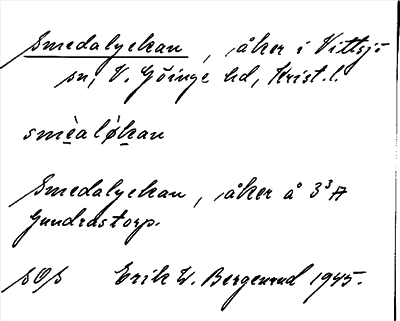 Smedalyckan, åker i Vittsjö
sn, V. Göinge hd, Krist. l.
smèaløkan
Smedalyckan, åker å 3³A
Gundrastorp.
SOS Erik W. Bergenrud 1945.